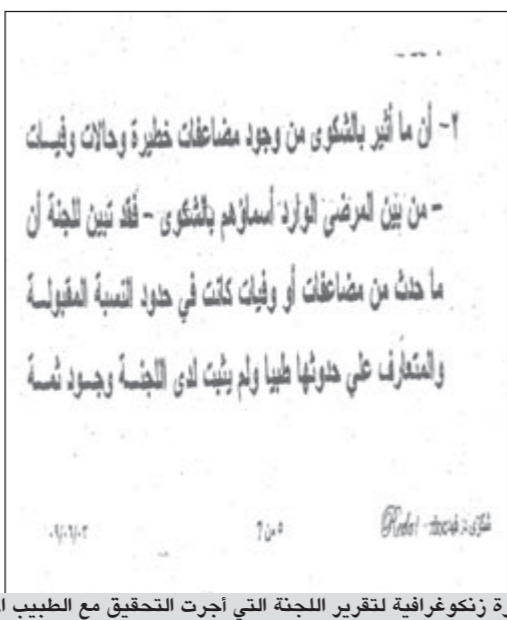 ٢- أن ما أثير بالشكوى من وجود مضاعفات خطيرة وحالات وفيــات
- من بين المرضى الوارد أسماؤهم بالشكوى - فقد تبين للجنة أن
ما حدث من مضاعفات أو وفيات كانت في حدود النسبة المقبولــة
والمتعارف علي حدوثها طبيا ولم يثبت لدى اللجنــة وجــود ثمــة
٥ من ٦
رة زنكوغرافية لتقرير اللجنة التي أجرت التحقيق مع الطبيب ا